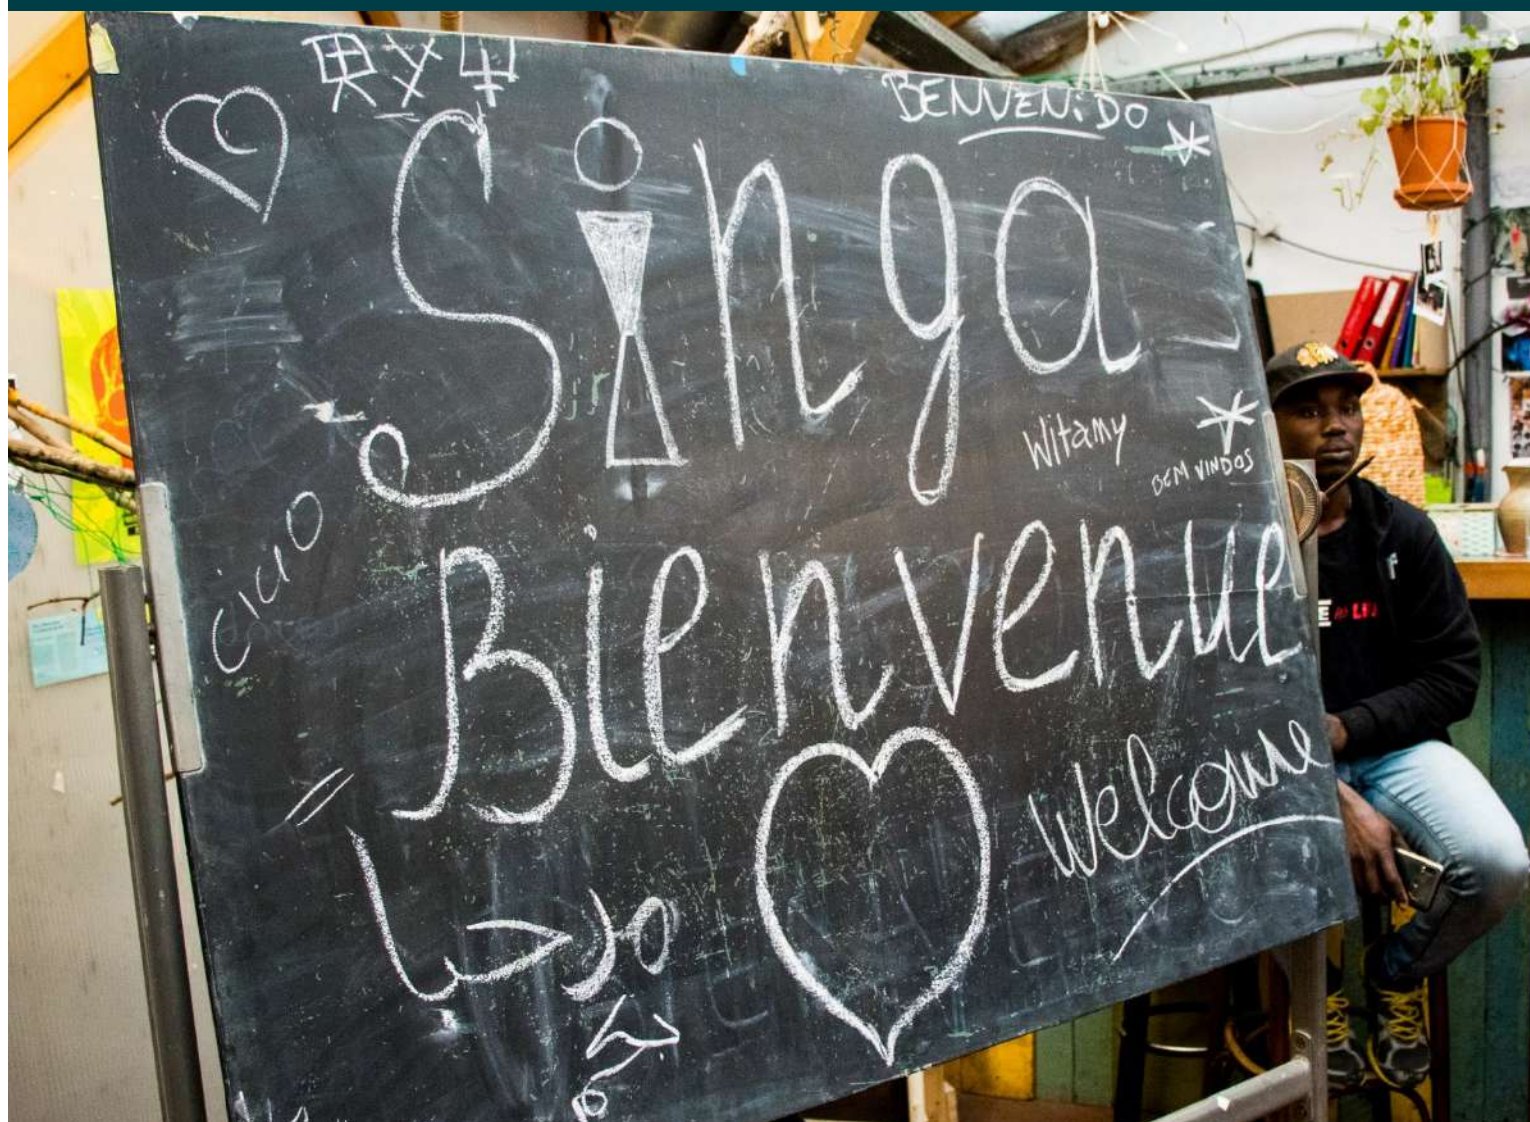 BENVENiDO
Singa
Witamy
BEM VINDOS
ciao
Bienvenue
Welcome
مرحبا